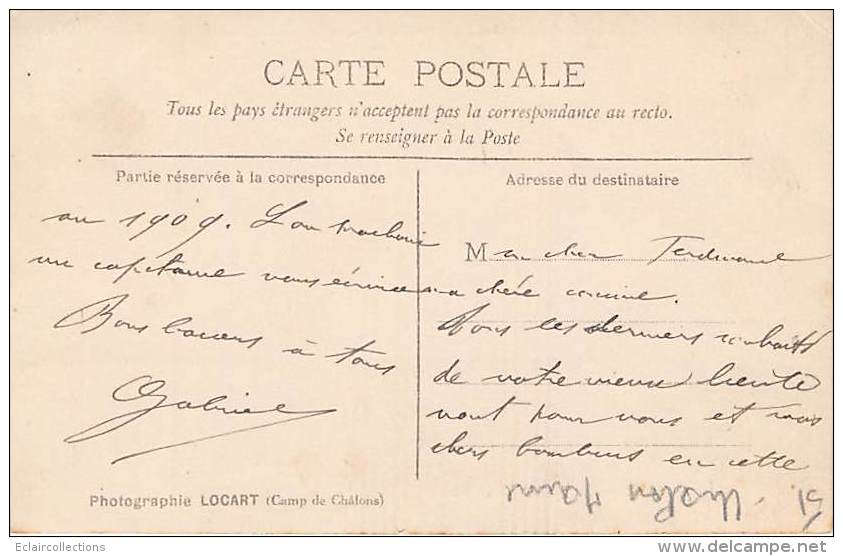 CARTE POSTALE
Tous les pays étrangers n'acceptent pas la correspondance au recto.
Se renseigner à la Poste
Partie réservée à la correspondance
Adresse du destinataire
Mon cher Ferdinand
ma chère cousine.
Vous les derniers souhaits
de votre vieux
vont pour vous et vos
chers bambins en cette
au 1909. L'an prochain
un capitaine vous écrira
Bons baisers à tous
Gabriel
Photographie LOCART (Camp de Châlons)
51
Eclaircollections
www.delcampe.net